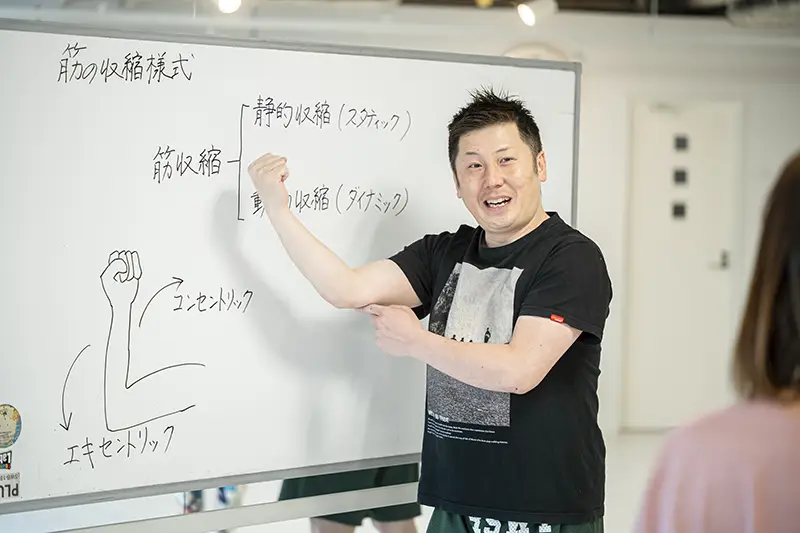 筋の収縮様式
静的収縮(スタティック)
筋収縮
動 収縮(ダイナミック)
コンセントリック
エキセントリック
PLU